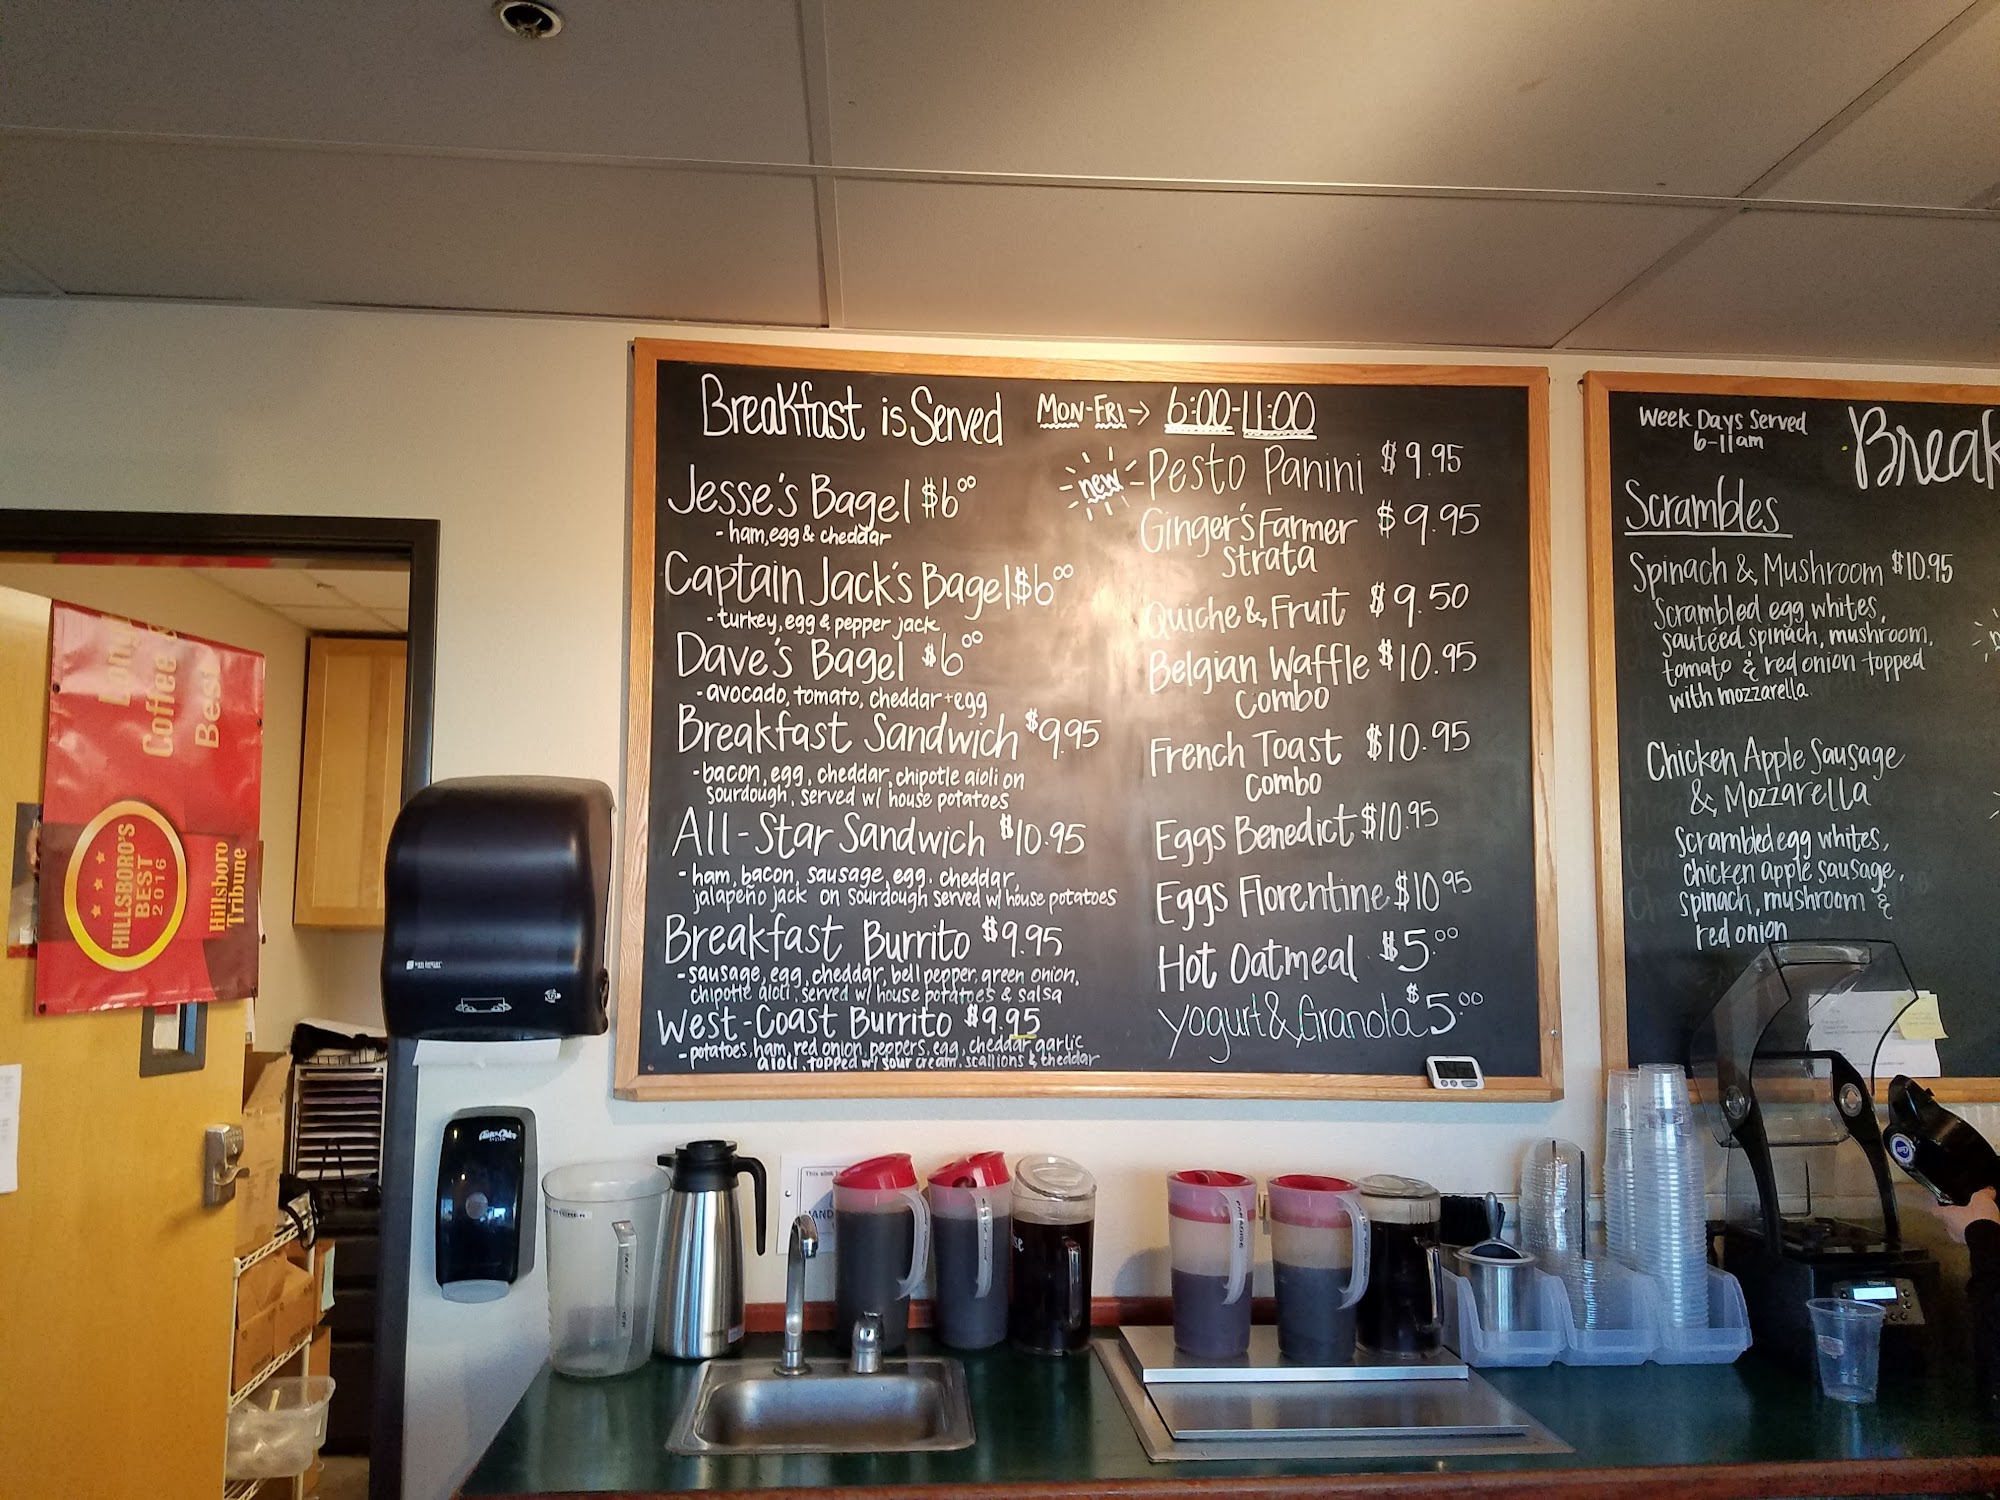 Breakfast is Served MON-FRI→ 6:00-11:00
Jesse's Bagel $6⁰⁰
- ham, egg & cheddar
Captain Jack's Bagel $6⁰⁰
- turkey, egg & pepper jack
Dave's Bagel $6⁰⁰
- avocado, tomato, cheddar + egg
Breakfast Sandwich $9.95
- bacon, egg, cheddar, chipotle aioli on
sourdough, served w/ house potatoes
All-Star Sandwich $10.95
- ham, bacon, sausage, egg, cheddar,
jalapeño jack on sourdough served w/ house potatoes
Breakfast Burrito $9.95
- sausage, egg, cheddar, bell pepper, green onion,
chipotle aioli, served w/ house potatoes & salsa
West-Coast Burrito $9.95
- potatoes, ham, red onion, peppers, egg, cheddar, garlic
aioli, topped w/ sour cream, scallions & cheddar
new - Pesto Panini $9.95
Ginger's Farmer $9.95
Strata
Quiche & Fruit $9.50
Belgian Waffle $10.95
Combo
French Toast $10.95
Combo
Eggs Benedict $10.95
Eggs Florentine $10⁹⁵
Hot Oatmeal $5.⁰⁰
Yogurt & Granola $5.⁰⁰
Week Days Served
6-11am
Break
Scrambles
Spinach & Mushroom $10.95
Scrambled egg whites,
sautéed spinach, mushroom,
tomato & red onion topped
with mozzarella.
Chicken Apple Sausage
& Mozzarella
Scrambled egg whites,
chicken apple sausage,
spinach, mushroom &
red onion
Coffee &
Best
HILLSBORO'S
BEST
2016
Hillsboro
Tribune
This sink
HAND
PARADISE